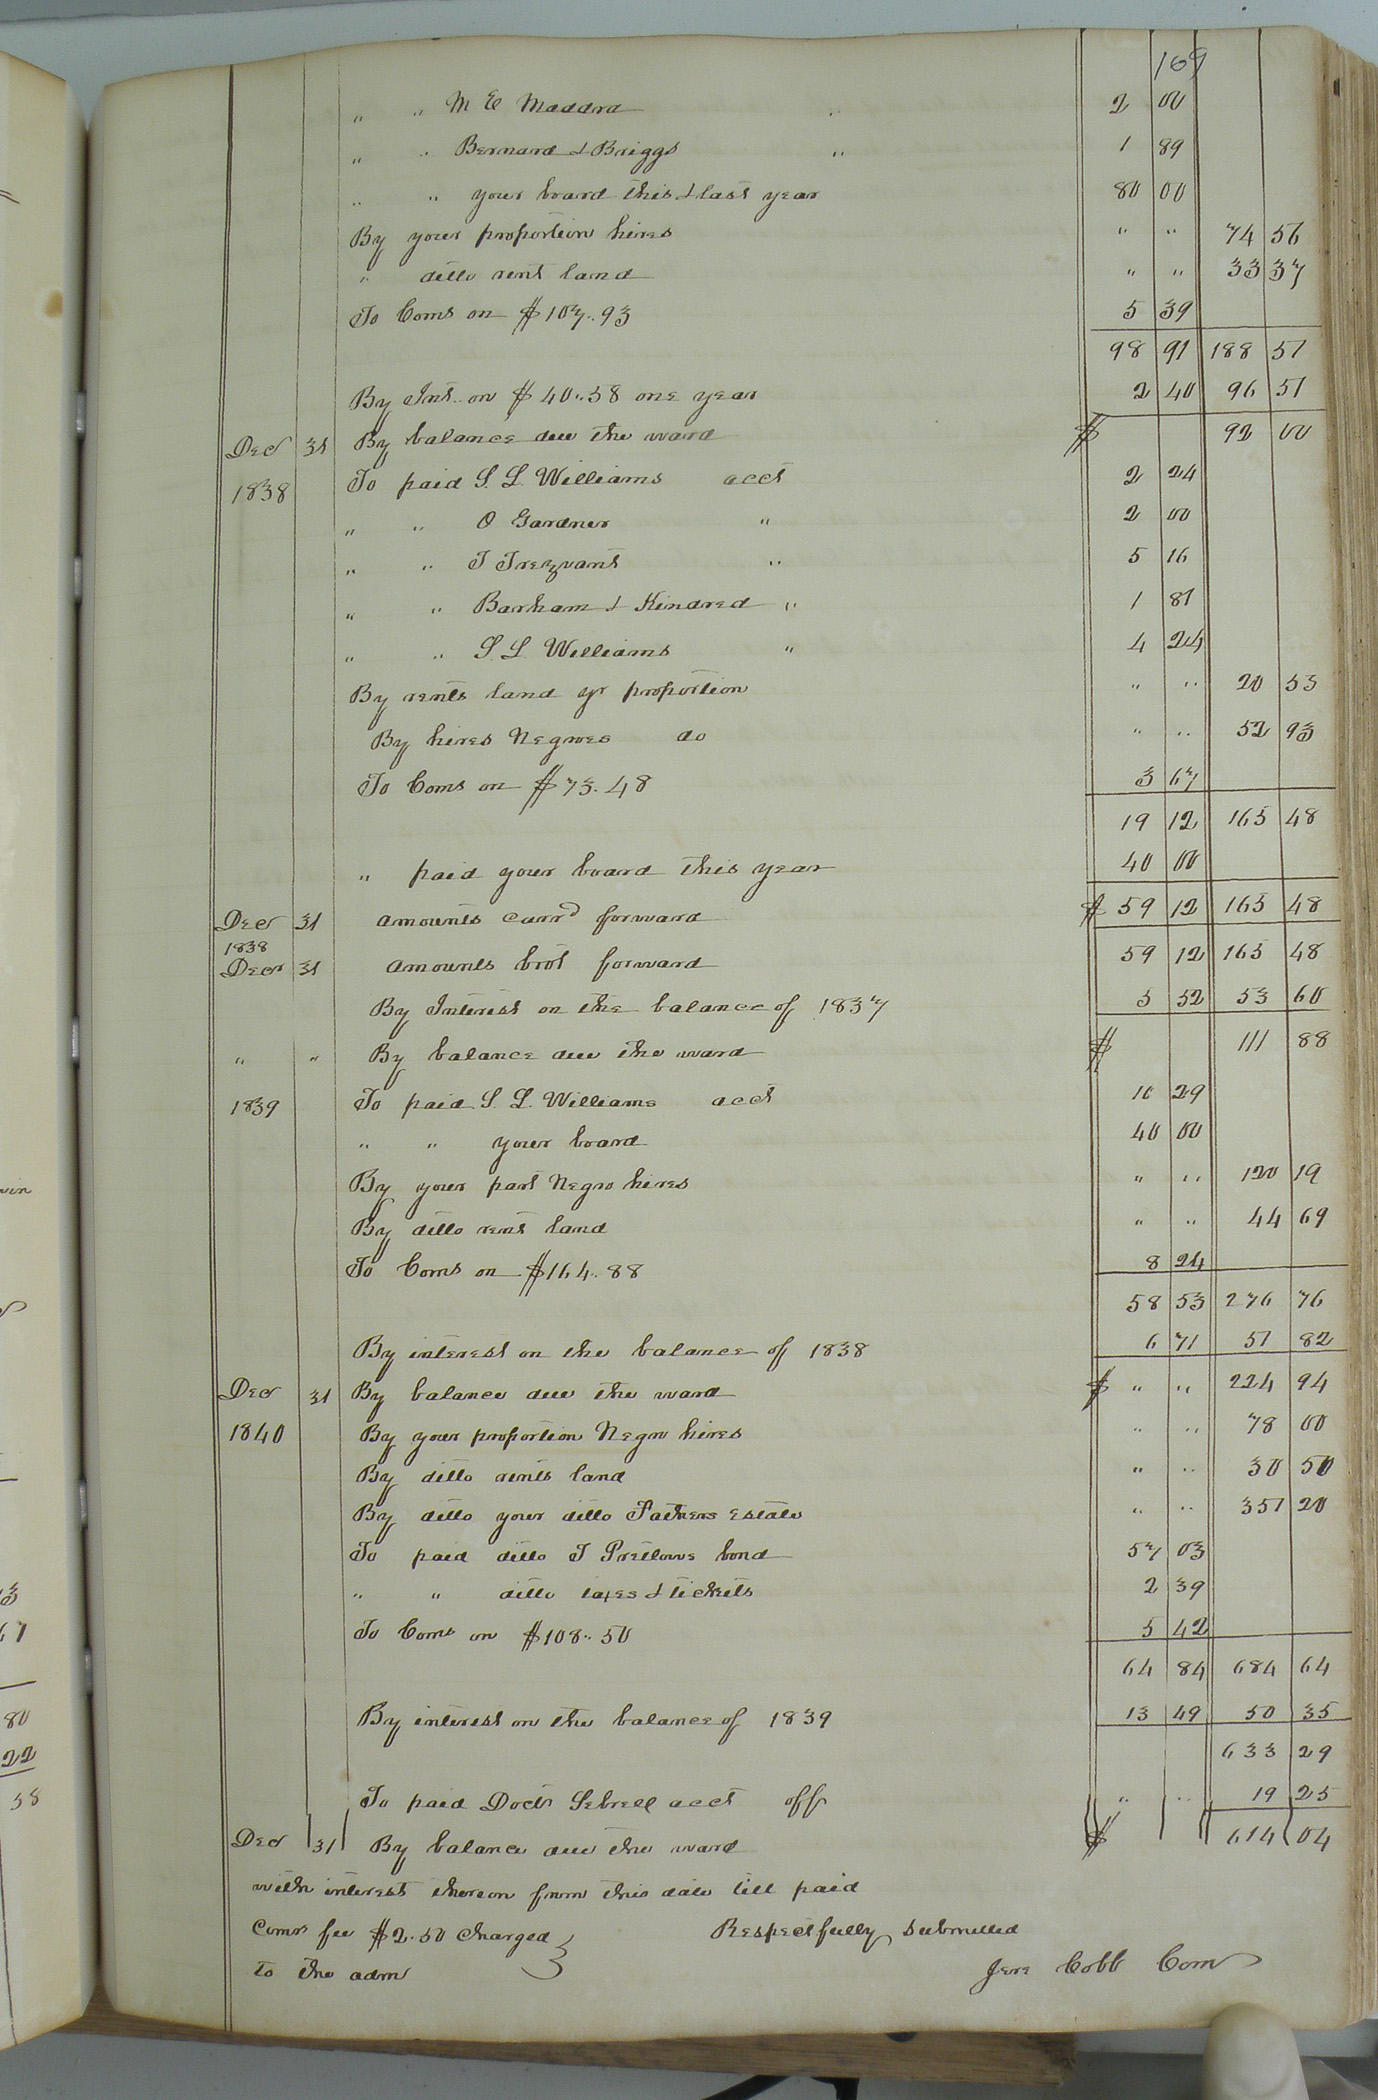 169
" " M E Maddra " 2 00
" " Bernard & Briggs " 1 89
" " your board this & last year 80 00
By your proportion hires " " 74 56
" ditto rent land " " 33 37
To Coms on $107..93 5 39
98 91 188 51
By Int.. on $40..58 one year 2 40 96 51
Decr 31 By balance due the ward $ 92 00
1838 To paid S. L. Williams acct 2 24
" " O Gardner " 2 00
" " T Trezvant " 5 16
" " Barham & Kindred " 1 81
" " S. L. Williams " 4 24
By rents land yr proportion " " 20 55
By hires Negroes do " " 52 93
To Coms on $73.48 3 67
19 12 165 48
" paid your board this year 40 00
Decr 31 amounts carrd forward $ 59 12 165 48
1838
Decr 31 amounts brot forward 59 12 165 48
By Interest on the balance of 1837 5 52 53 60
" " By balance due the ward $ 111 88
1839 To paid S. L. Williams acct 10 29
" " your board 40 00
By your part Negro hires " " 120 19
By ditto rent land " " 44 69
To Coms on $164..88 8 24
58 53 276 76
By interest on the balance of 1838 6 71 51 82
Decr 31 By balance due the ward $ " " 224 94
1840 By your proportion Negro hires " " 78 00
By ditto rents land " " 30 50
By ditto your ditto Fathers Estate " " 351 20
To paid ditto T Pretlows bond 57 03
" " ditto taxes & tickets 2 39
To Coms on $108..50 5 42
64 84 684 64
By interest on the balance of 1839 13 49 50 35
633 29
To paid Doctr Sebrell acct off " " 19 25
Decr 31 By balance due the ward $ 614 04
with interest thereon from this date till paid
Comrs fee $2.50 charged } Respectfully submitted
to the adm Jere Cobb Com